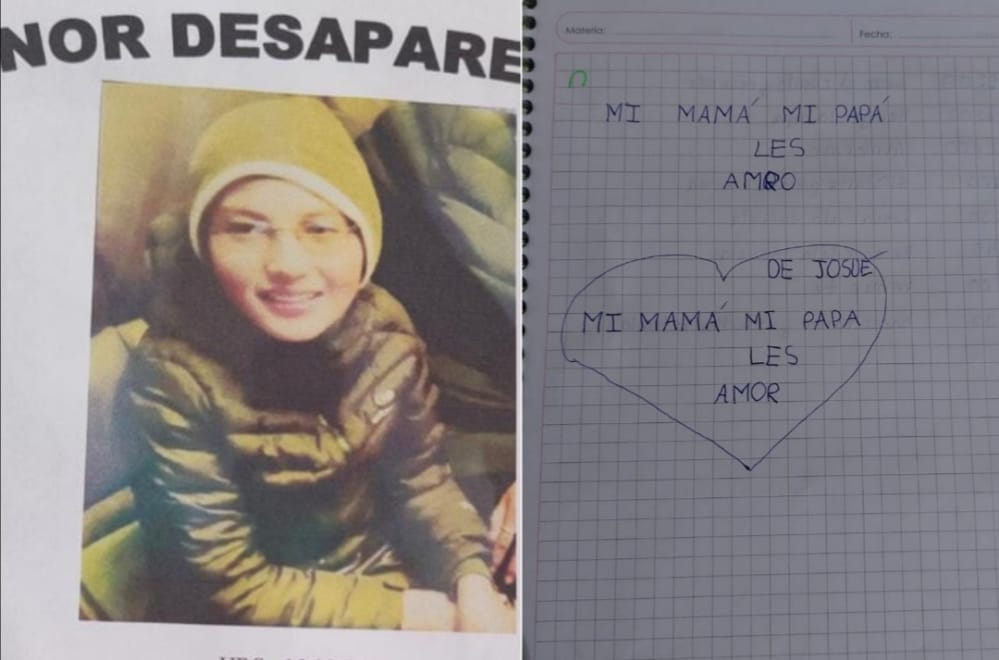 NOR DESAPARE
Materia:
Fecha:
MI MAMÁ MI PAPÁ
LES
AMRO
DE JOSUÉ
MI MAMÁ MI PAPA
LES
AMOR